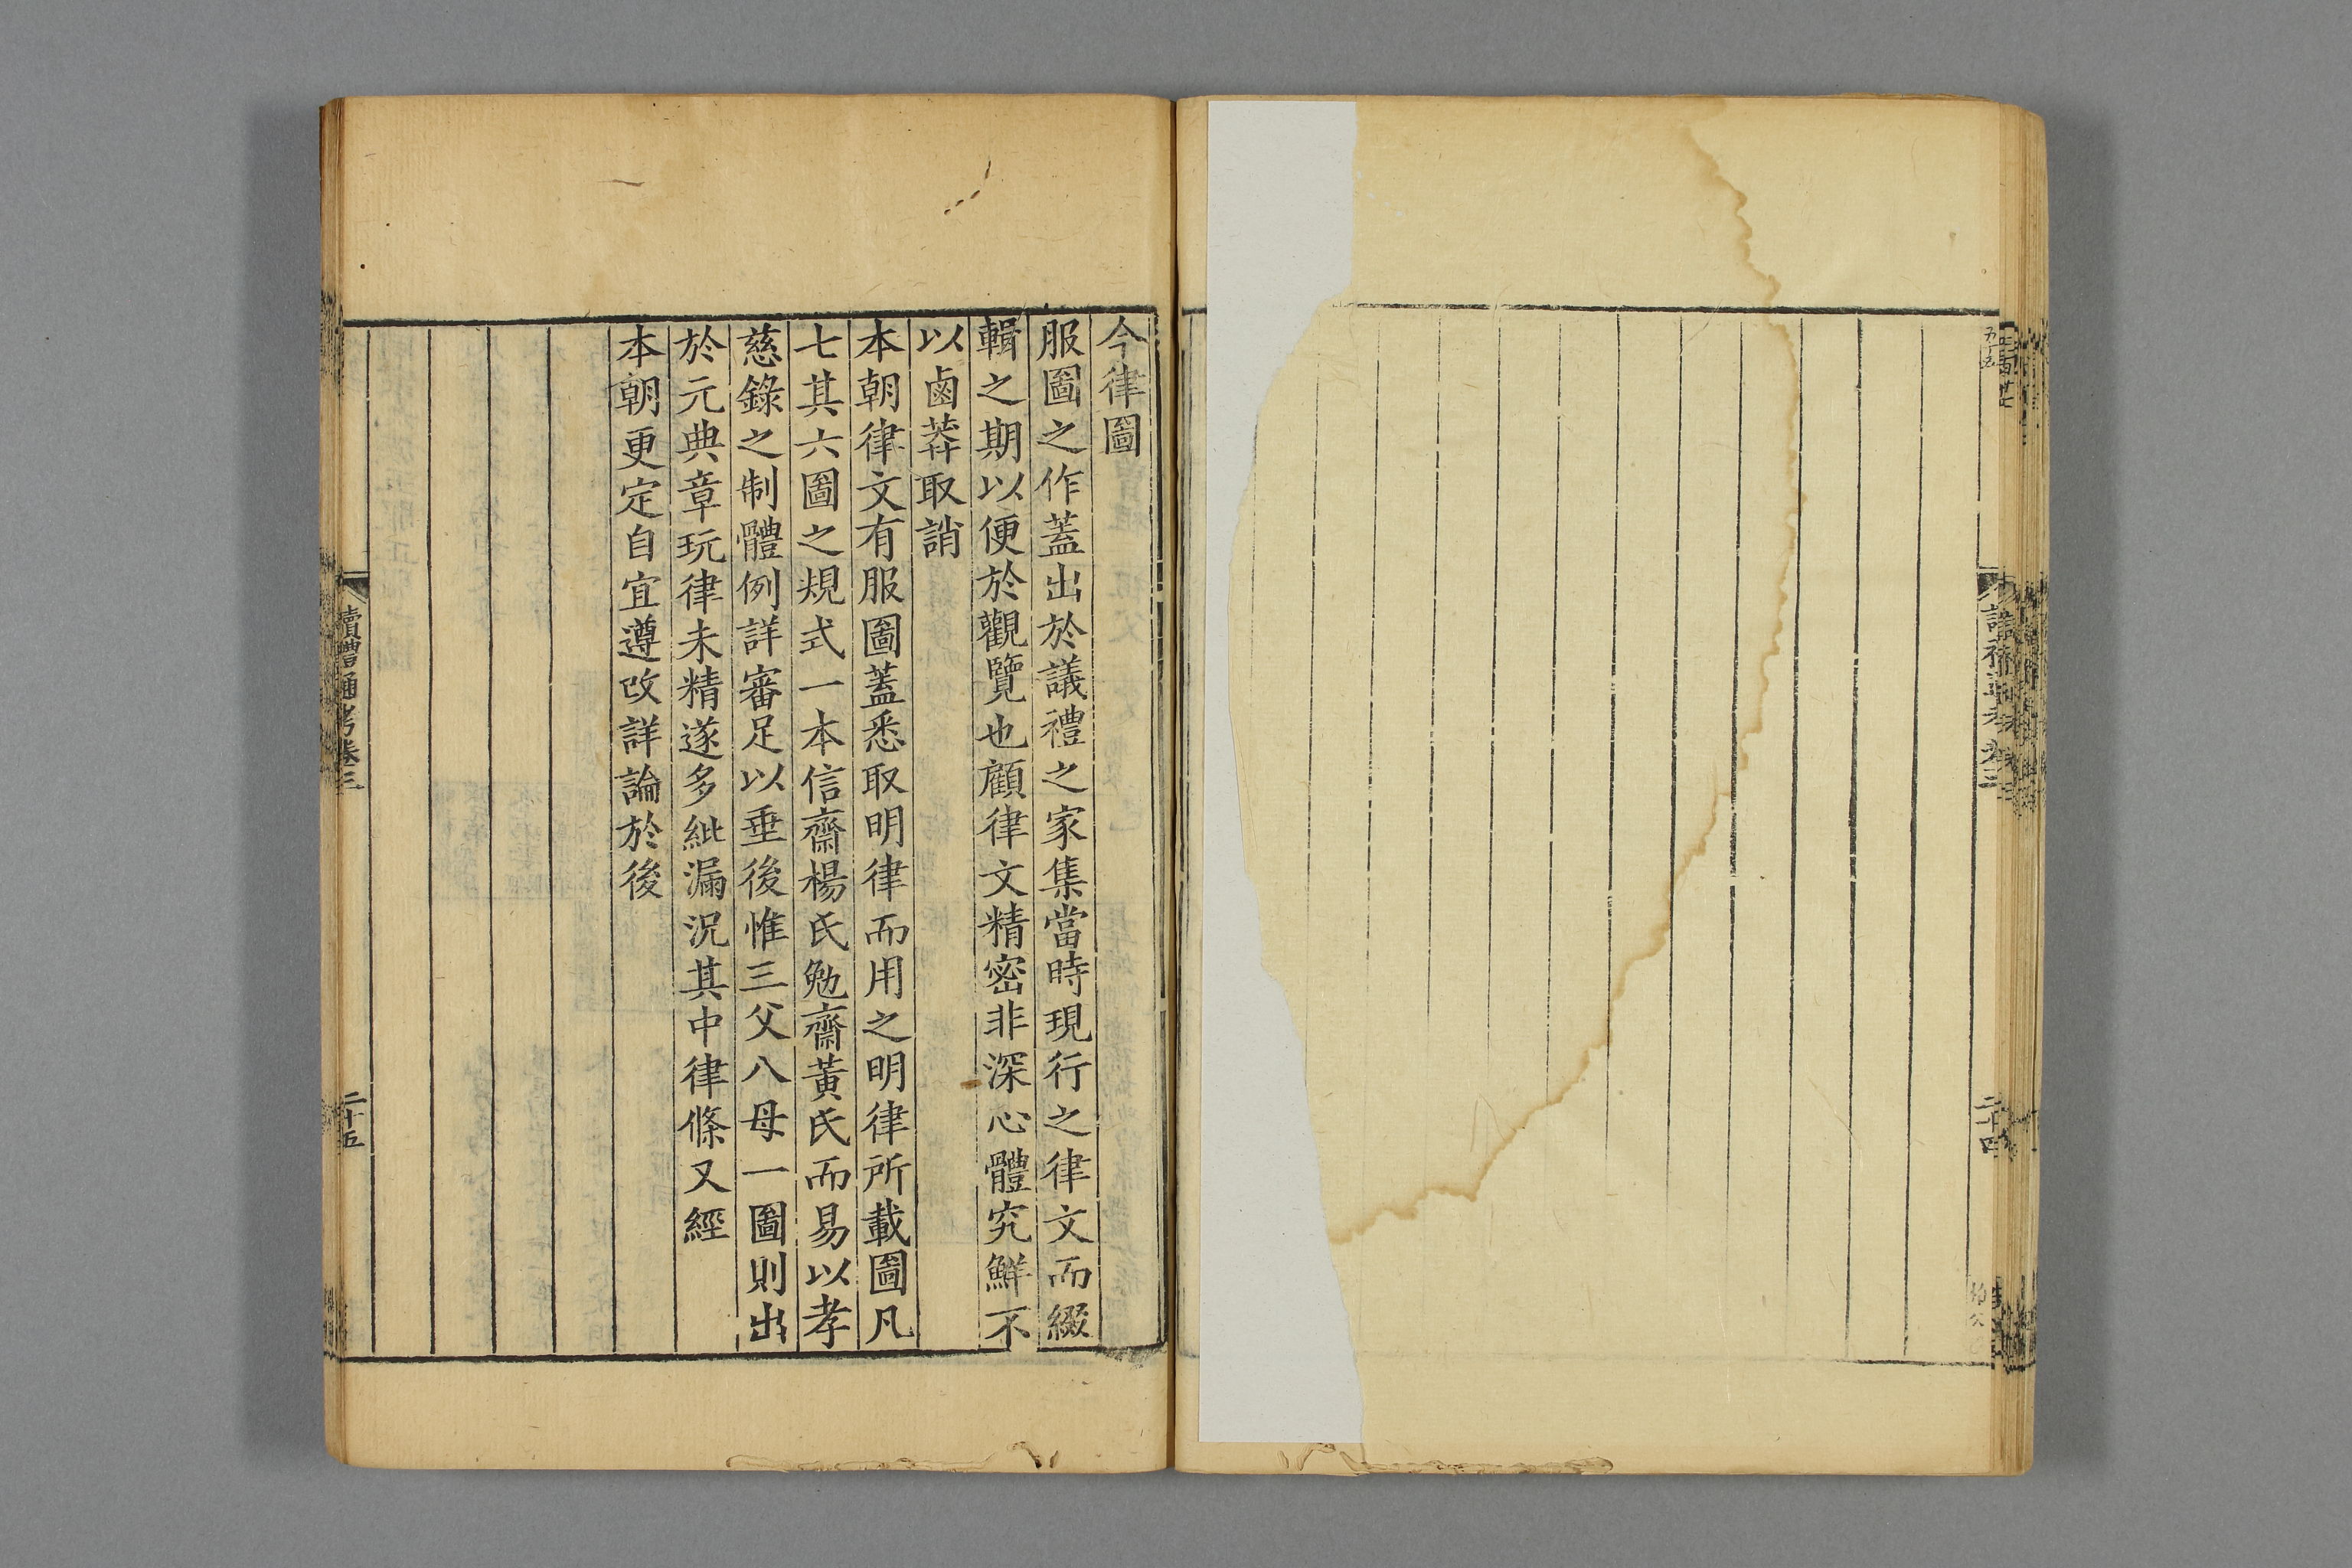 今律圖
服圖之作蓋出於議禮之家集當時現行之律文而綴
輯之期以便於觀覽也顧律文精密非深心體究鮮不
以鹵莽取誚
本朝律文有服圖蓋悉取明律而用之明律所載圖凡
七其六圖之規式一本信齋楊氏勉齋黃氏而易以孝
慈錄之制體例詳審足以垂後惟三父八母一圖則出
於元典章玩律未精遂多紕漏況其中律條又經
本朝更定自宜遵改詳論於後
讀禮通考卷三
二十五
二十四